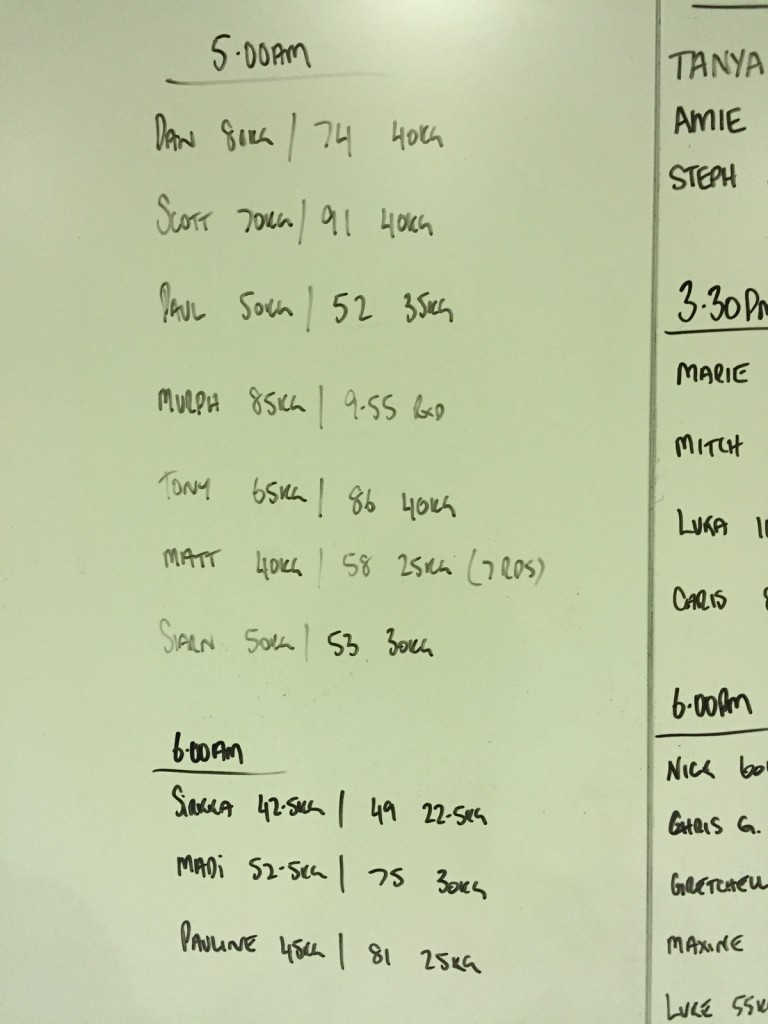 5.00AM
DAN 80KG / 74 40KG
SCOTT 70KG / 91 40KG
PAUL 50KG / 52 35KG
MURPH 85KG | 9.55 RXD
TONY 65KG / 86 40KG
MATT 40KG / 58 25KG (7 RDS)
SIARN 50KG / 53 30KG
6.00AM
SIRKKA 42.5KG | 49 22.5KG
MADI 52.5KG | 75 30KG
PAULINE 45KG | 81 25KG
TANYA
AMIE
STEPH
3.30PM
MARIE
MITCH
LUKA
CARIS
6.00PM
NICK 60
CHRIS G.
GRETCHELL
MAXINE
LUKE 55K